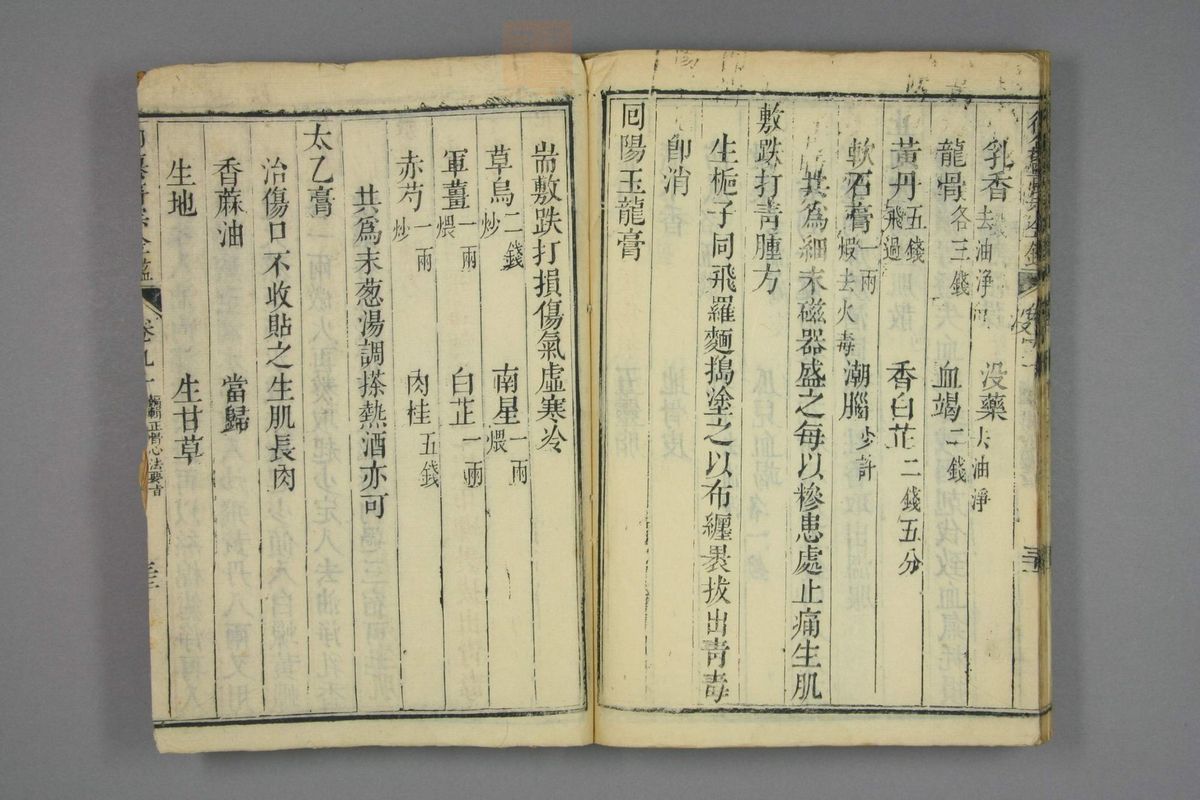 乳香去油淨 沒藥去油淨
龍骨各三錢 血竭二錢
黃丹五錢飛過 香白芷二錢五分
軟石膏一兩煅去火毒 潮腦少許
共為細末磁器盛之每以糝患處止痛生肌
敷跌打青腫方
生梔子同飛羅麵搗塗之以布纏裹拔出青毒
即消
囘陽玉龍膏
耑敷跌打損傷氣虛寒冷
草烏二錢炒 南星一兩煨
軍薑一兩煨 白芷一兩
赤芍一兩炒 肉桂五錢
共為末葱湯調搽熱酒亦可
太乙膏
治傷口不收貼之生肌長肉
香蔴油 當歸
生地 生甘草
卷九十 編輯正骨心法要旨 三三